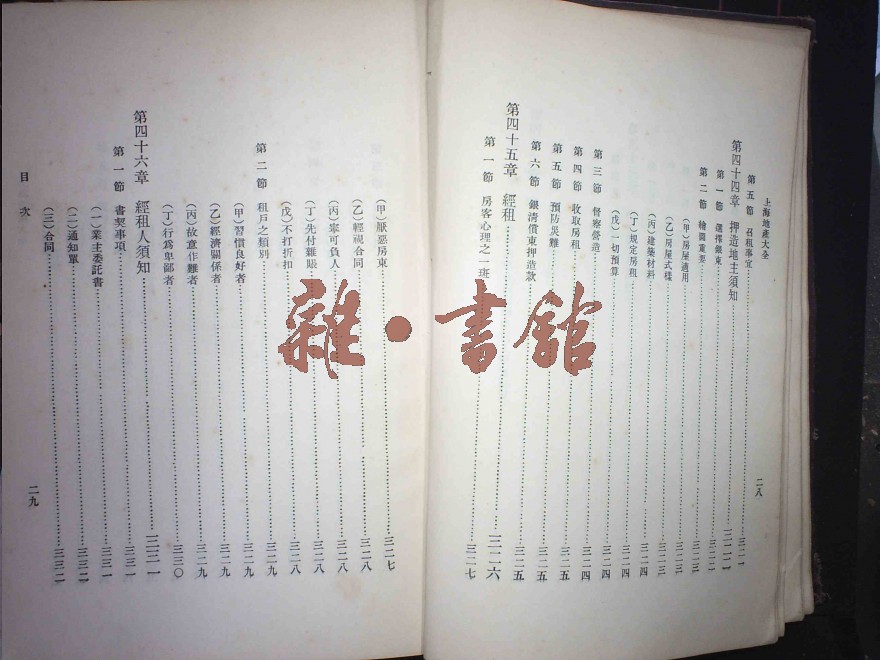 上海地產大全
二八
第五節 召租事宜……三二一
第四十四章 押造地主須知……三二二
第一節 選擇銀東……三二二
第二節 繪圖重要……三二三
(甲)房屋適用……三二三
(乙)房屋式樣……三二三
(丙)建築材料……三二四
(丁)規定房租……三二四
(戊)一切預算……三二四
第三節 督察營造……三二四
第四節 收取房租……三二四
第五節 預防災難……三二五
第六節 銀清償東押造款……三二五
第四十五章 經租……三二六
第一節 房客心理之一斑……三二七
(甲)厭惡房東……三二七
(乙)輕視合同……三二八
(丙)寧可負人……三二八
(丁)先付雜賬……三二八
(戊)不打折扣……三二八
第二節 租戶之類別……三二九
(甲)習慣良好者……三二九
(乙)經濟關係者……三二九
(丙)故意作難者……三二九
(丁)行為卑鄙者……三三〇
第四十六章 經租人須知……三三一
第一節 書契事項……三三一
(一)業主委託書……三三一
(二)通知單……三三二
(三)合同……三三二
目次
二九
雜·書館